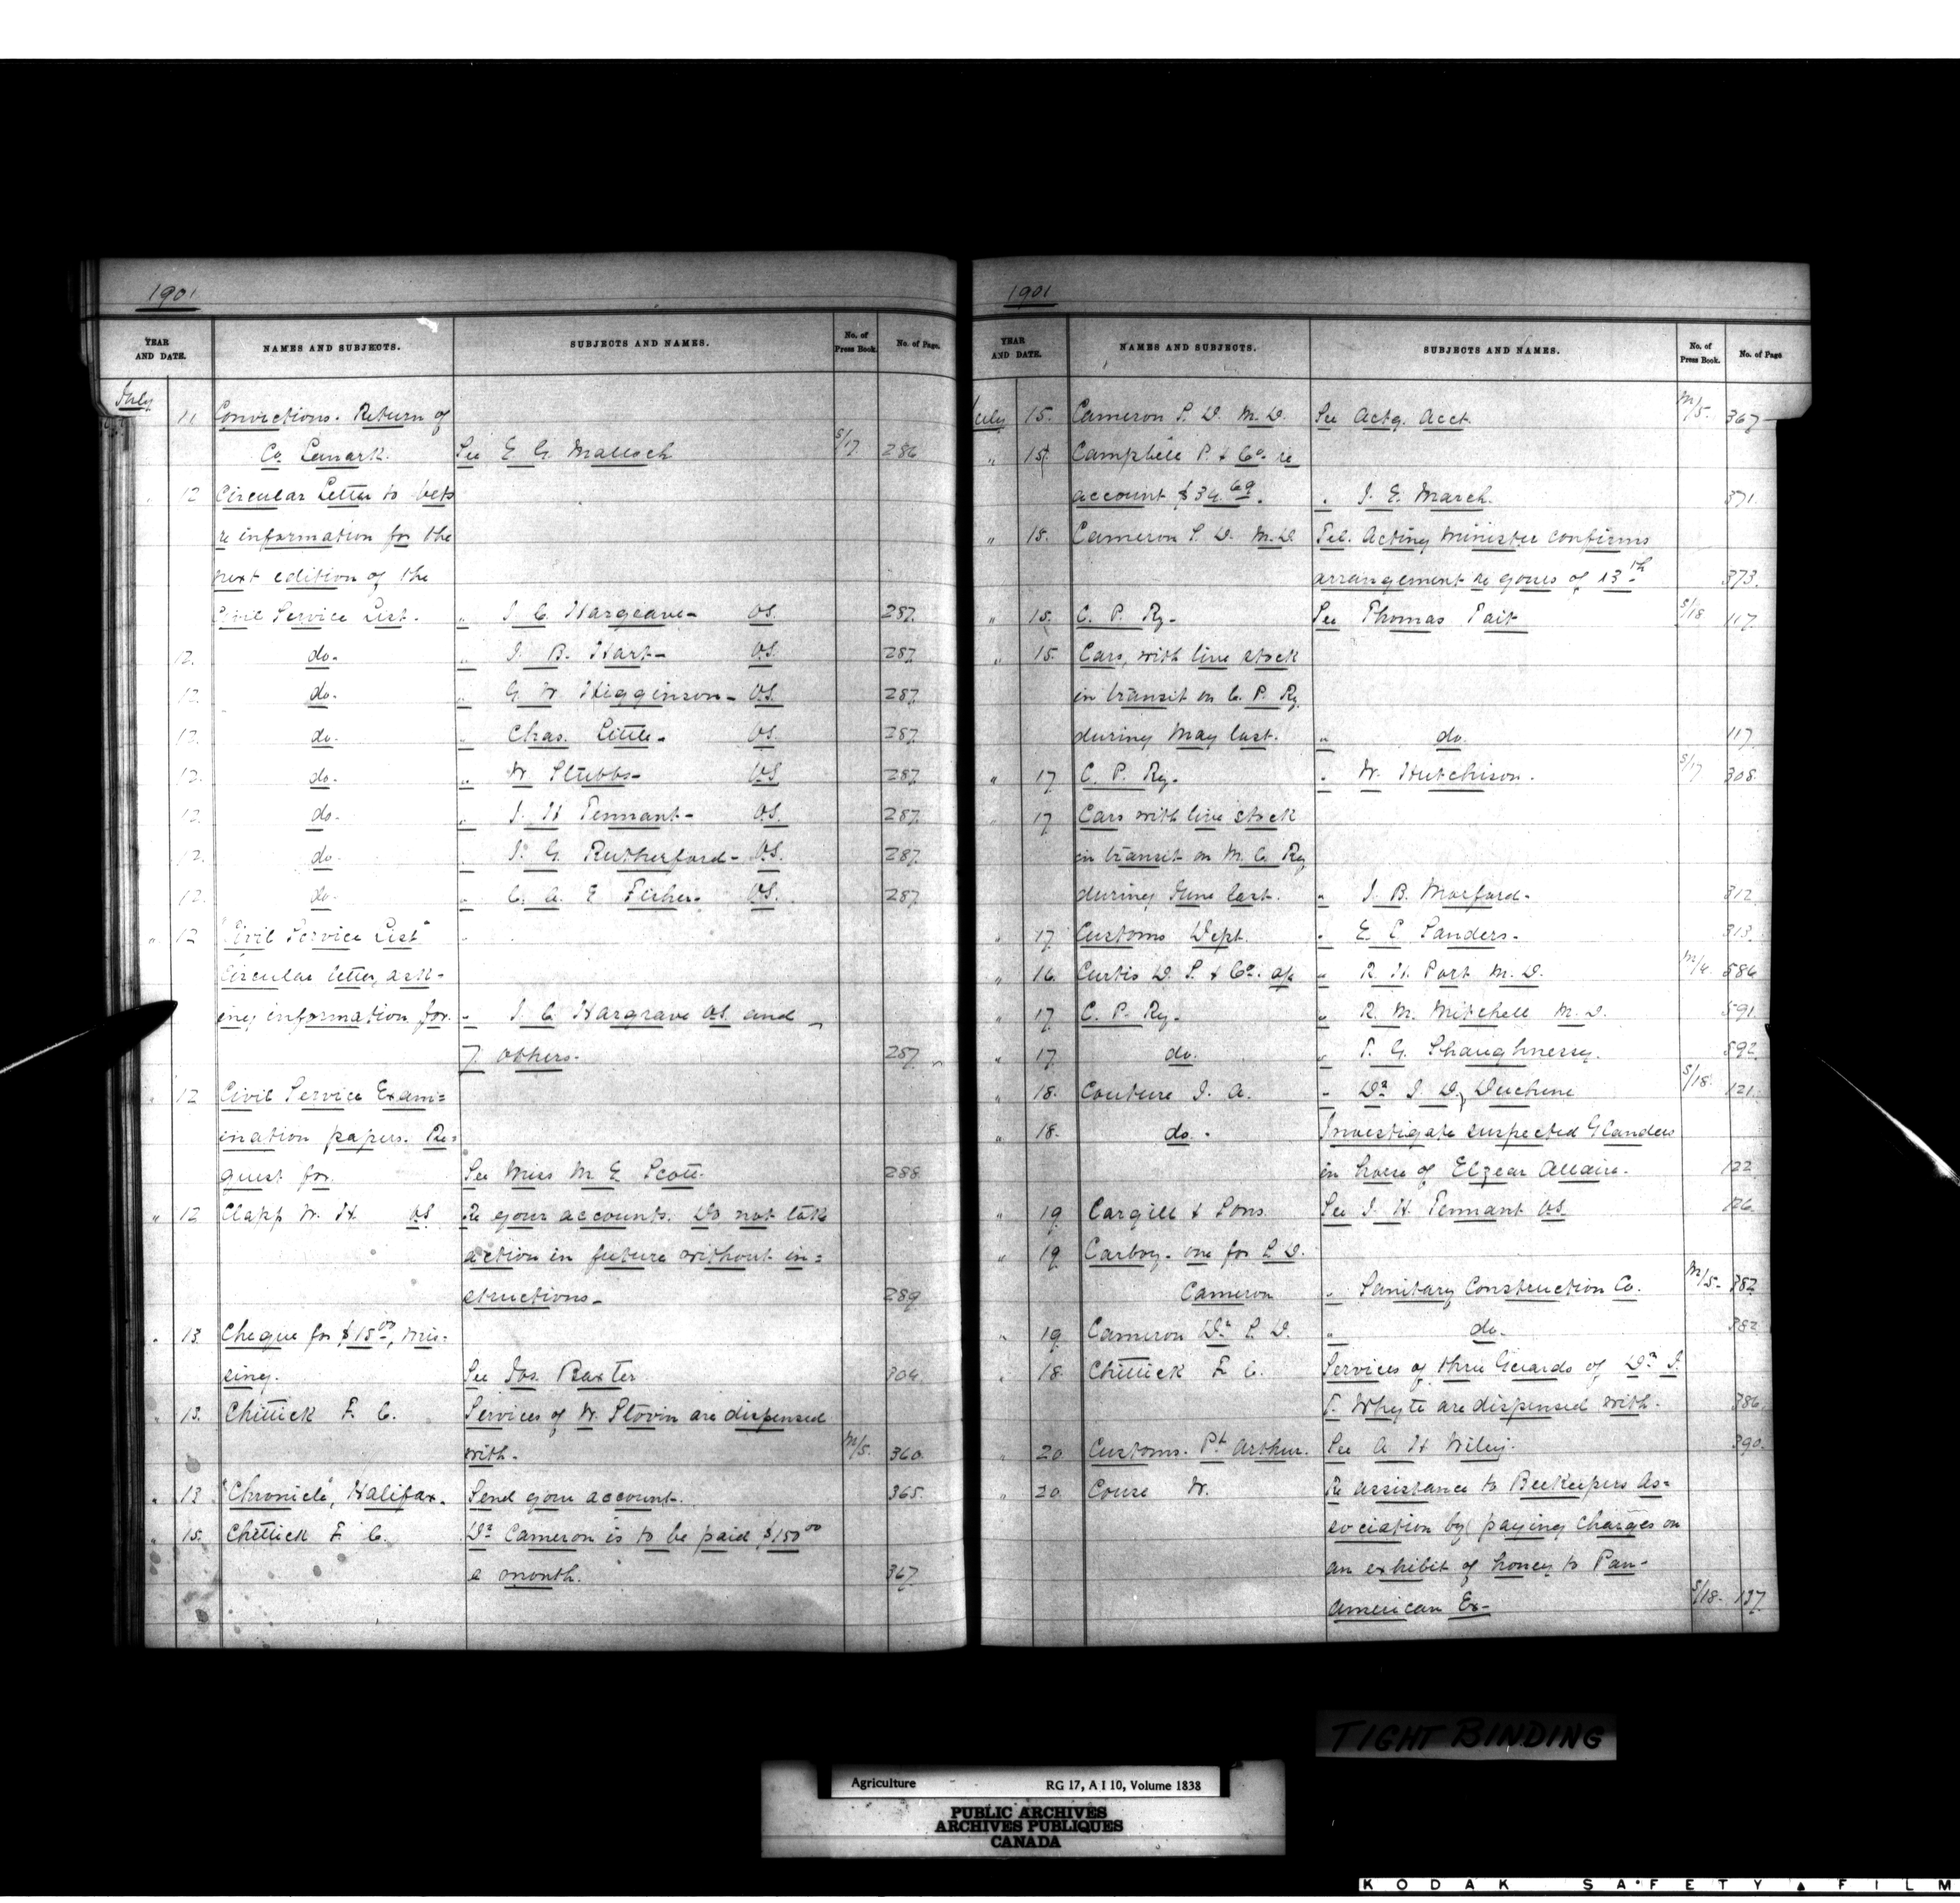 1901
YEAR AND DATE. NAMES AND SUBJECTS. SUBJECTS AND NAMES. No. of Press Book. No. of Page.
July 11 Convictions. Return of
Co. Lanark. See E. G. Malloch S/17 286
" 12 Circular Letter to Vets
re information for the
next edition of the
Civil Service List. " J. C. Hargrave - V.S. 287
12. do- " J. B. Hart - V.S. 287
12. do- " G. W. Higginson - V.S. 287
12. do- " Chas. Little - V.S. 287
12. do- " W Stubbs - V.S. 287
12. do- " J. H Tennant - V.S. 287
12. do- " J. G. Rutherford - V.S. 287
12. do- " C. A. E Fisher - V.S. 287
" 12 "Civil Service List"
Circular letter, ask-
ing information for. " J. C Hargrave V.S. and
7 others. 287
" 12 Civil Service Exami=
ination papers. Re=
quest for. See Miss M. E Scott. 288
" 12 Clapp W. H. V.S. Re your accounts. Do not take
action in future without in=
structions - 289
" 13 Cheque for $15.00, mis=
sing. See Jos. Baxter 304
" 13. Chittick F. C. Services of W. Slovin are dispensed
with. M/5. 360
" 13 "Chronicle", Halifax. Send your account. 365.
" 15. Chittick F. C. Dr Cameron is to be paid $150 00
a month. 367
1901
YEAR AND DATE. NAMES AND SUBJECTS. SUBJECTS AND NAMES. No. of Press Book. No. of Page
July 15. Cameron S. D. M. D. See Actg. Acct. M/5. 367
" 15. Campbell P. & Co. re
account $34.69. " J. E. March. 371.
" 15. Cameron S. D. M.D. Tel. Acting Minister confirms
arrangement re yours of 13th 373.
" 15. C. P. Ry. See Thomas Tait S/18 117
" 15. Cars, with live stock
in transit on C. P. Ry
during May last. " do. 117
" 17 C. P. Ry. " W. Hutchison. S/17 308.
" 17 Cars with live stock
in transit on M. C. Ry
during June last. " J. B. Morford. 312.
" 17. Customs Dept. " E. L Sanders. 313.
" 16. Curtis D. S. & Co. a/c " R. H. Port M. D. M/4. 586
" 17 C. P. Ry. " R. M. Mitchell M. D. 591
" 17. do. " T. G. Shaughnessy. 592
" 18. Couture J. A. " Dr J. D. Duchene S/18. 121.
" 18. do. Investigate suspected Glanders
in horse of Elzear Allaire. 122
" 19 Cargill & Sons. See J. H. Tennant V.S. 126.
" 19. Carboy. one for S. D.
Cameron " Sanitary Construction Co. M/5. 382
" 19. Cameron Dr S. D. " do. 382
" 18. Chittick F. C. Services of three Guards of Dr J.
T. Whyte are dispensed with. 386.
" 20. Customs. Pt Arthur. See A. H Wiley. 390.
" 20. Couse W. Re assistance to Beekeepers As=
sociation by paying charges on
an exhibit of honey to Pan-
American Ex- S/18. 137
TIGHT BINDING
Agriculture RG 17, A I 10, Volume 1838
PUBLIC ARCHIVES
ARCHIVES PUBLIQUES
CANADA
KODAK SAFETY FILM